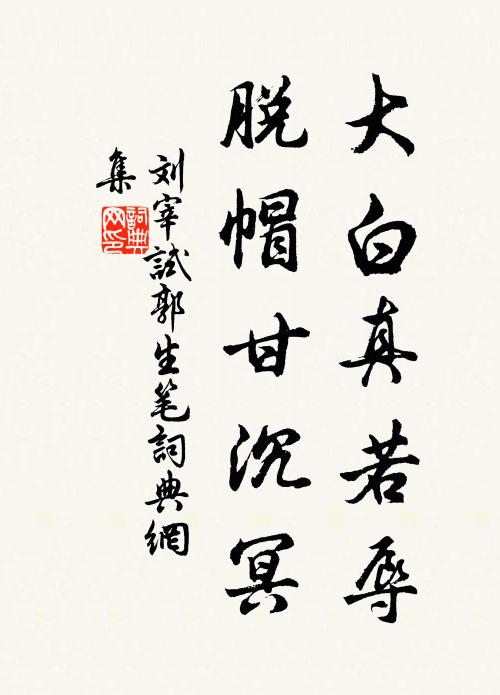 大白真若辱
脱帽甘沉冥
刘宰試郭生笔詞典網
集
詞典
网印